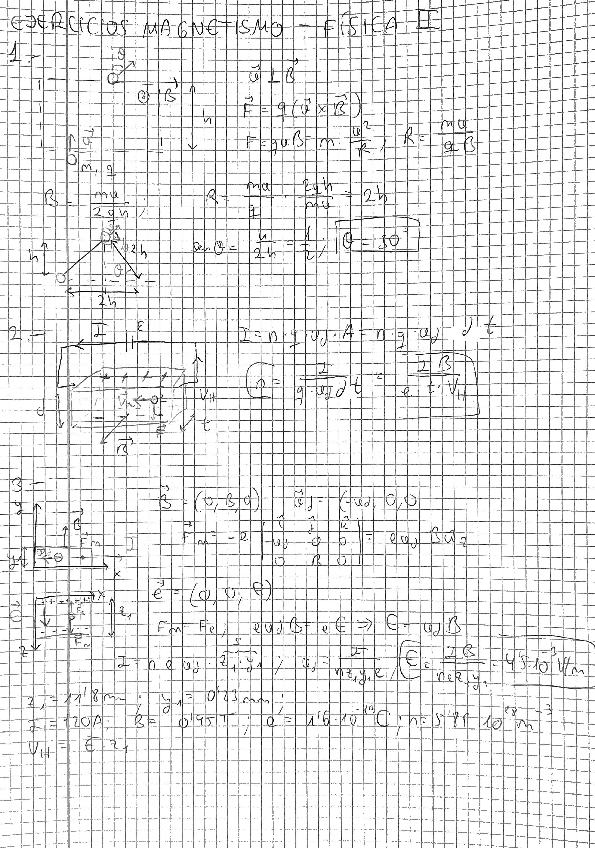 EJERCICIOS MAGNETISMO - FÍSICA II
1.-
v ⊥ B
F = q (v × B)
F = q v B = m v²/R ; R = mv/qB
h
m, q
B = mv/2qh ; R = mv/q · 2qh/mv = 2h
h 2h θ
sen θ = h/2h = 1/2 ; θ = 30°
2h
2.-
I ε
I = n · q · vd · A = n · q · vd · d t
n = I/(q · vd d t) = I B/(e · t · VH)
d VH t
B
3.-
B = (0, B, 0) vd = (-vd, 0, 0)
Fm = -e | i j k ; -vd 0 0 ; 0 B 0 | = e vd B uz
e = (0, 0, E)
Fm = Fe ; e vd B = e E ⇒ E = vd B
I = n e vd · z1 · y1 ; vd = I/(n z1 y1 e) ; E = I B/(n e z1 y1) = 4'5·10⁻³ V/m
z1 = 11'8 mm ; y1 = 0'23 mm ;
I = 120A ; B = 0'95 T ; e = 1'6·10⁻¹⁹ C ; n = 5'85 10²⁸ m⁻³
VH = E · z1